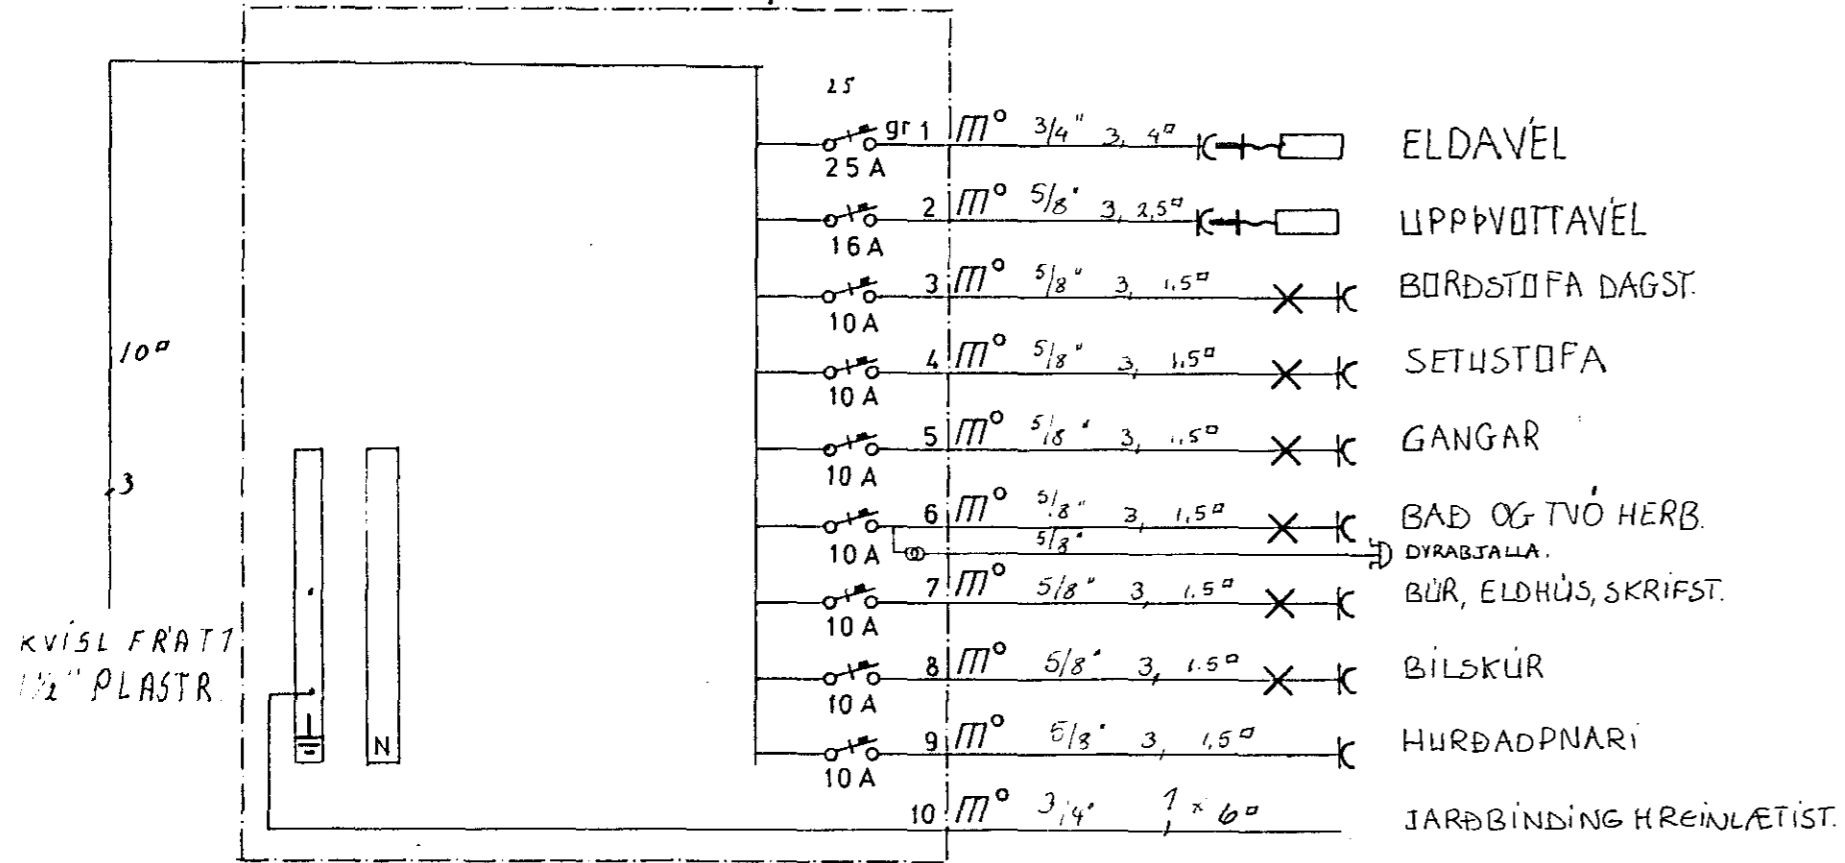 25
gr 1 m° 3/4" 3, 4□ ELDAVÉL
25 A
2 m° 5/8" 3, 2,5□ UPPÞVOTTAVÉL
16 A
3 m° 5/8" 3, 1,5□ BORÐSTOFA DAGST.
10 A
4 m° 5/8" 3, 1,5□ SETUSTOFA
10 A
10□
5 m° 5/8" 3, 1,5□ GANGAR
10 A
3
6 m° 5/8" 3, 1,5□ BAÐ OG TVÖ HERB.
10 A 5/8" DYRABJALLA.
7 m° 5/8" 3, 1.5□ BÚR, ELDHÚS, SKRIFST.
10 A
KVÍSL FRÁ T1
1½" PLASTR.
8 m° 5/8" 3, 1.5□ BÍLSKÚR
10 A
N
9 m° 5/8" 3, 1,5□ HURÐAOPNARI
10 A
10 m° 3/4" 1 x 6□ JARÐBINDING HREINLÆTIST.